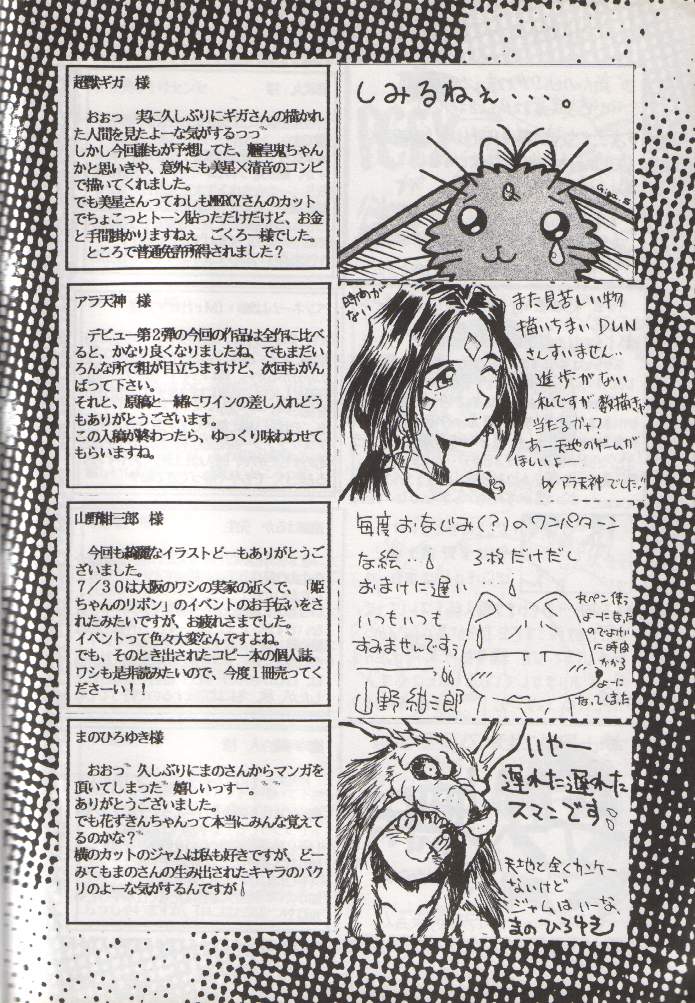 超獣ギガ 様
おぉっ 実に久しぶりにギガさんの描かれ
た人間を見たよーな気がするっっ゛
しかし今回誰もが予想してた、魎皇鬼ちゃん
かと思いきや、意外にも美星×清音のコンビ
で描いてくれました。
でも美星さんってわしもMERCYさんのカット
でちょこっとトーン貼っただけだけど、お金
と手間掛かりますねぇ ごくろー様でした。
ところで普通免許所得されました？
しみるねぇ、、。
Giga.S
アラ天神 様
デビュー第２弾の今回の作品は全作に比べ
ると、かなり良くなりましたね、でもまだい
ろんな所で粗が目立ちますけど、次回もがん
ばって下さい。
それと、原稿と一緒にワインの差し入れどう
もありがとうございます。
この入稿が終わったら、ゆっくり味わわせて
もらいますね。
時間が
ない
また見苦しい物
描いちまい DUN
さんすいません‥
進歩がない
私ですが数描きゃ
当たるかナ？
あー天地のゲームが
ほしいよー
by アラ天神でした。
山野紺三郎 様
今回も綺麗なイラストどーもありがとうご
ざいました。
７／３０は大阪のワシの実家の近くで、「姫
ちゃんのリボン」のイベントのお手伝いをさ
れたみたいですが、お疲れさまでした。
イベントって色々大変なんですよね。
でも、そのとき出されたコピー本の個人誌、
ワシも是非読みたいので、今度１冊売ってく
ださーい！！
毎度おなじみ(?)のワンパターン
な絵‥ ３枚だけだし
おまけに遅い
いつもいつも
すみませんですぅ
山野紺三郎
丸ペン使う
よーになった
のでよけい
に時間
かかる
よーに
なってしまった
まのひろゆき様
おおっ゛久しぶりにまのさんからマンガを
頂いてしまった゛嬉しいっすー。゛
ありがとうございました。
でも花ずきんちゃんって本当にみんな覚えて
るのかな？゛
横のカットのジャムは私も好きですが、どー
みてもまのさんの生み出されたキャラのパク
リのよーな気がするんですが
いやー
遅れた遅れた
スマンです
天地と全くカンケー
ないけど
ジャムはいーな
まのひろゆき